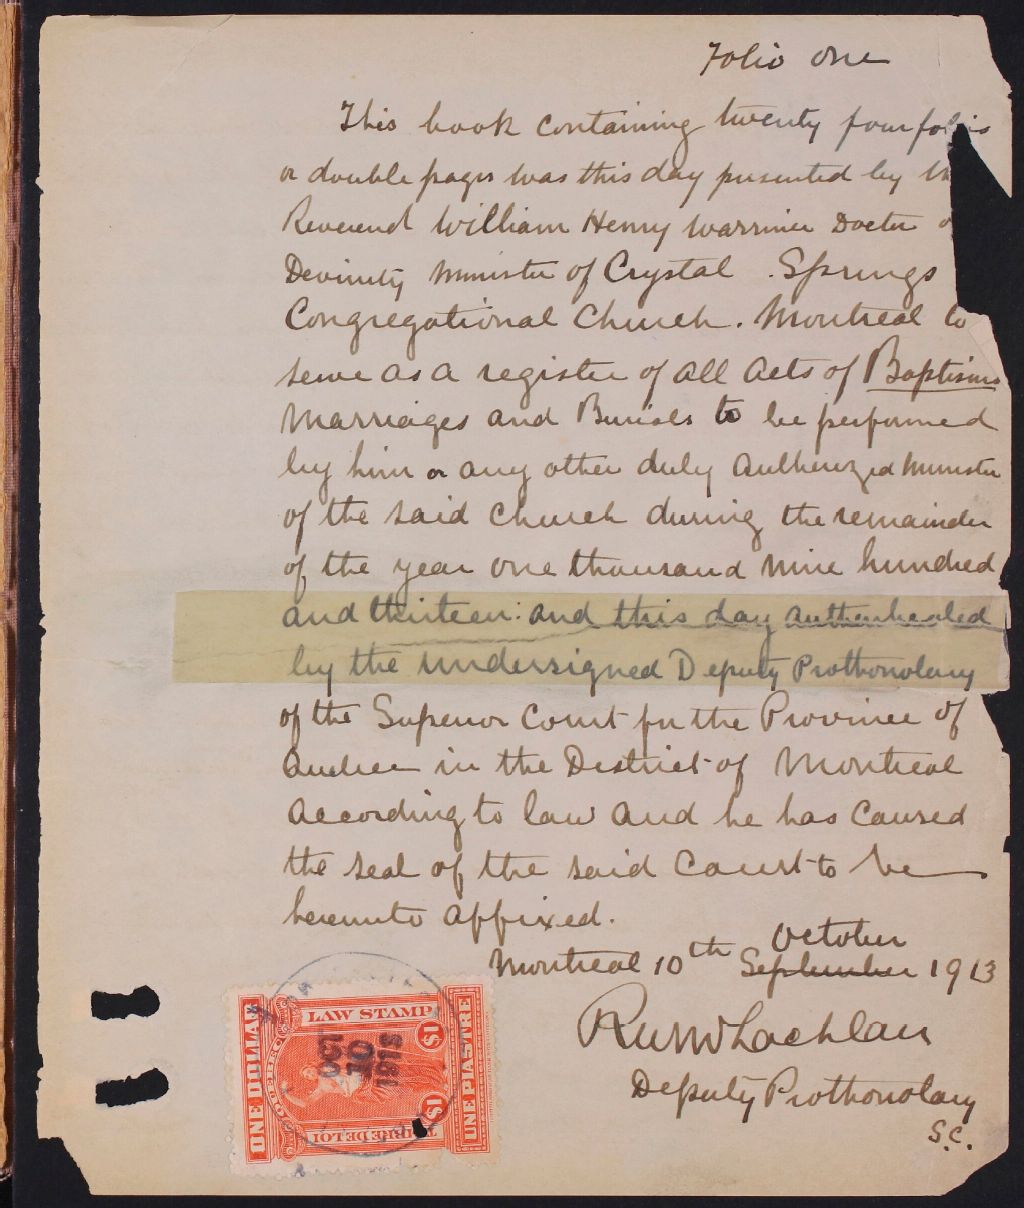 Folio one
This book containing twenty four folios
or double pages was this day presented by
Reverend William Henry Warriner Doctor
Devinity Minister of Crystal Springs
Congregational Church. Montreal to
serve as a register of all acts of Baptisms
Marriages and Burials to be performed
by him or any other duly authorized Minister
of the said Church during the remainder
of the year one thousand nine hundred
and thirteen: and this day authenticated
by the undersigned Deputy Prothonotary
of the Superior Court for the Province of
Quebec in the District of Montreal
according to law and he has caused
the seal of the said Court to be
hereunto affixed.
October
Montreal 10th September 1913
Deputy Prothonotary
S.C.
LAW STAMP
ONE DOLLAR
QUEBEC
$1
OCT
10
1913
UNE PIASTRE
$1
TIMBRE DE LOI